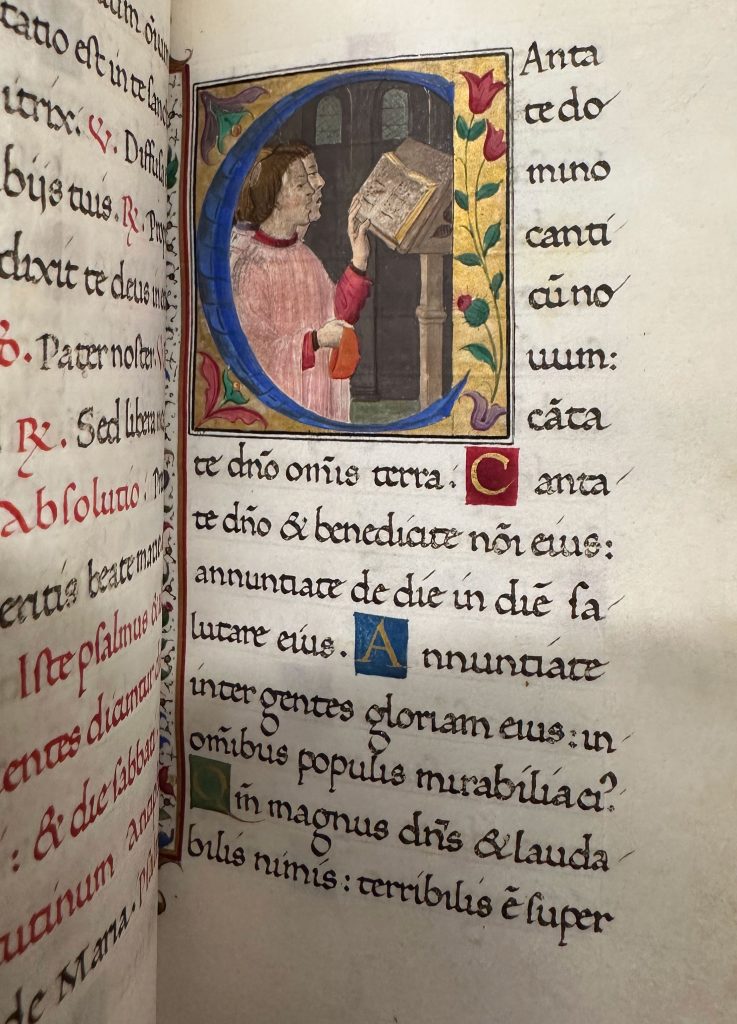 tatio est in te
itrix. ℣. Diffusa
bijs tuis. ℟.
dixit te deus in
Pater noster.
℟. Sed libera
Absolutio.
eritis beate
Iste psalmus
entes dicuntur
: & die sabbati
utinum
de Maria.
CAnta
te do
mino
canti
cũ no
uum:
cãta
te dño om̃is terra. Canta
te dño & benedicite nõi eius:
annuntiate de die in diẽ ſa
lutare eius. Annuntiate
inter gentes gloriam eius: in
om̃ibus populis mirabilia eiꝰ.
Qm̃ magnus dñs & lauda
bilis nimis: terribilis ẽ ſuper